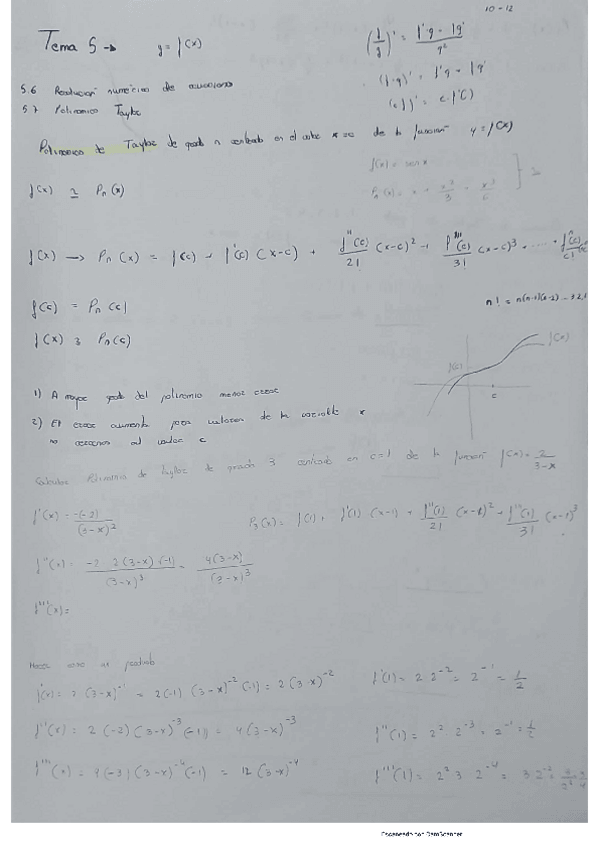 10 - 12
Tema 5 → y = f(x)
(f/g)' = f'g - fg' / g²
(f·g)' = f'g + fg'
(c f)' = c·f'(x)
5.6 Resolución numérica de ecuaciones
5.7 Polinomio Taylor
Polinomio de Taylor de grado n centrado en el valor x=c de la función y = f(x)
f(x) = sen x
f(x) ≃ Pn(x)
f(x) → Pn(x) = f(c) + f'(c)(x-c) + f''(c)/2! (x-c)² + f'''(c)/3! (x-c)³ + ....
f(c) = Pn(c)
n! = n(n-1)(n-2) ... 3.2.1
f(x)
f(c)
c
1) A mayor grado del polinomio menor error
2) El error aumenta para valores de la variable x
no cercanos al valor c
Calcular Polinomio de Taylor de grado 3 centrado en c=1 de la función f(x) = 2/3-x
f'(x) = -(-2)/(3-x)²
P3(x) = f(1) + f'(1)(x-1) + f''(1)/2! (x-1)² + f'''(1)/3! (x-1)³
f''(x) = -2·2(3-x)(-1)/(3-x)³ = 4(3-x)/(3-x)³
f'''(x) =
Hacer como un producto
f'(x) = 2(3-x)⁻¹ = 2(-1)(3-x)⁻²(-1) = 2(3-x)⁻²
f'(1) = 2·2⁻² = 2⁻¹ = 1/2
f''(x) = 2(-2)(3-x)⁻³(-1) = 4(3-x)⁻³
f''(1) = 2² 2⁻³ = 2⁻¹ = 1/2
f'''(x) = 4(-3)(3-x)⁻⁴(-1) = 12(3-x)⁻⁴
f'''(1) = 2² 3 2⁻⁴ = 3 2⁻² = 3/2² = 3/4
Escaneado con CamScanner